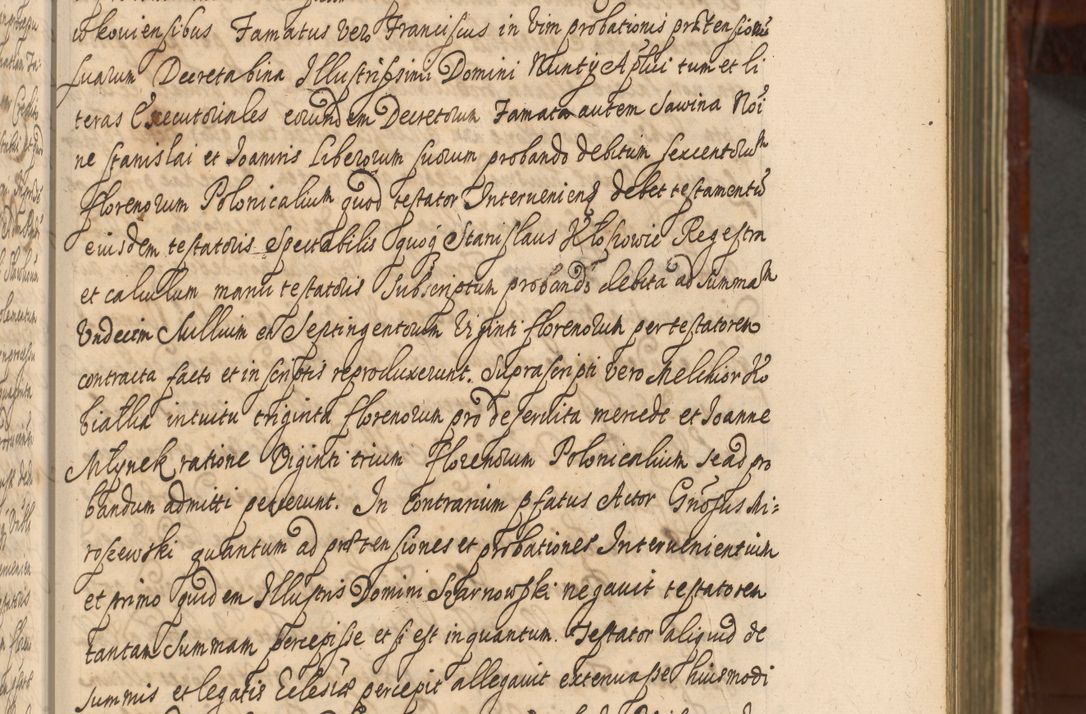 cokoviensibus Famatus vero Franciscus in vim probationis prætensionū
suarum Decreta bina Illustrissimi Domini Nuntÿ Aplici tum et li
teras Executoriales eorundem Decretorum Famata autem Sawina Noi
ne Stanislai et Joannis Liberorum suorum probando debitum sexcentorum
florenorum Polonicalium quod testator Interveniens debet testamentū
eiusdem testatoris spectabilis quoq Stanislaus Kłossowic Regestra
et calculum manu testatoris Subscriptum probando debita ad summam
Vndecim Millium et Septingentorum Viginti florenorum per testatorem
contracta facto et in scriptis reproduxerunt. Suprascripti vero Melchior Ko
białka intuitu triginta florenorum pro deservita mercede et Joanne
Młynek ratione Viginti trium Florenorum Polonicalium se ad pro
bandum admitti petierunt. In contrarium pfatus Actor Gnosus Mi=
roszewski quantum ad prætensiones et probationes Intervenientium
et primo quidem Illustris Domini Szarnowski negavit testatorem
tantam Summam percepisse et si est in quantum. Testator aliquid de
summis et legatis Eclesiæ percepit allegavit extenuasse huismodi